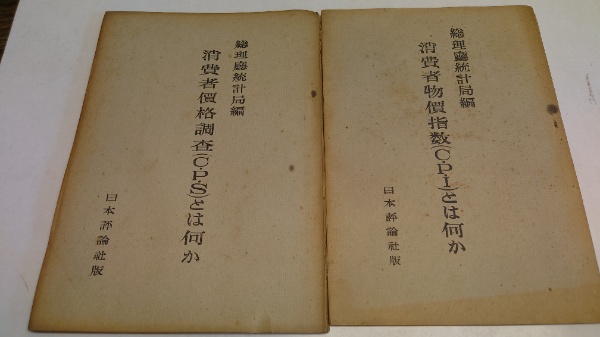 総理廳統計局編
消費者價格調査(C.P.S)とは何か
日本評論社版
総理廳統計局編
消費者物價指数(C.P.I)とは何か
日本評論社版